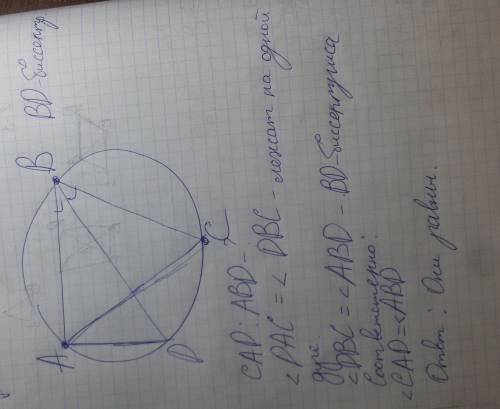 BD - биссектр.
B
A
C
D
CAD : ABD -
<DAC = < DBC - лежат на одной
дуге.
<DBC = <ABD - BD - биссектриса
Соответственно:
<CAD = <ABD
Ответ: Они равны.